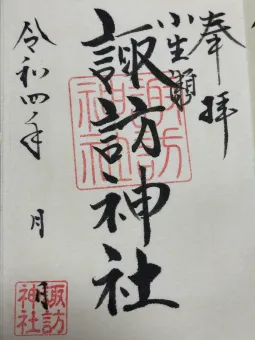 奉拝
小生瀬
諏訪神社
令和四年
月
月
諏訪
神社
諏訪
神社